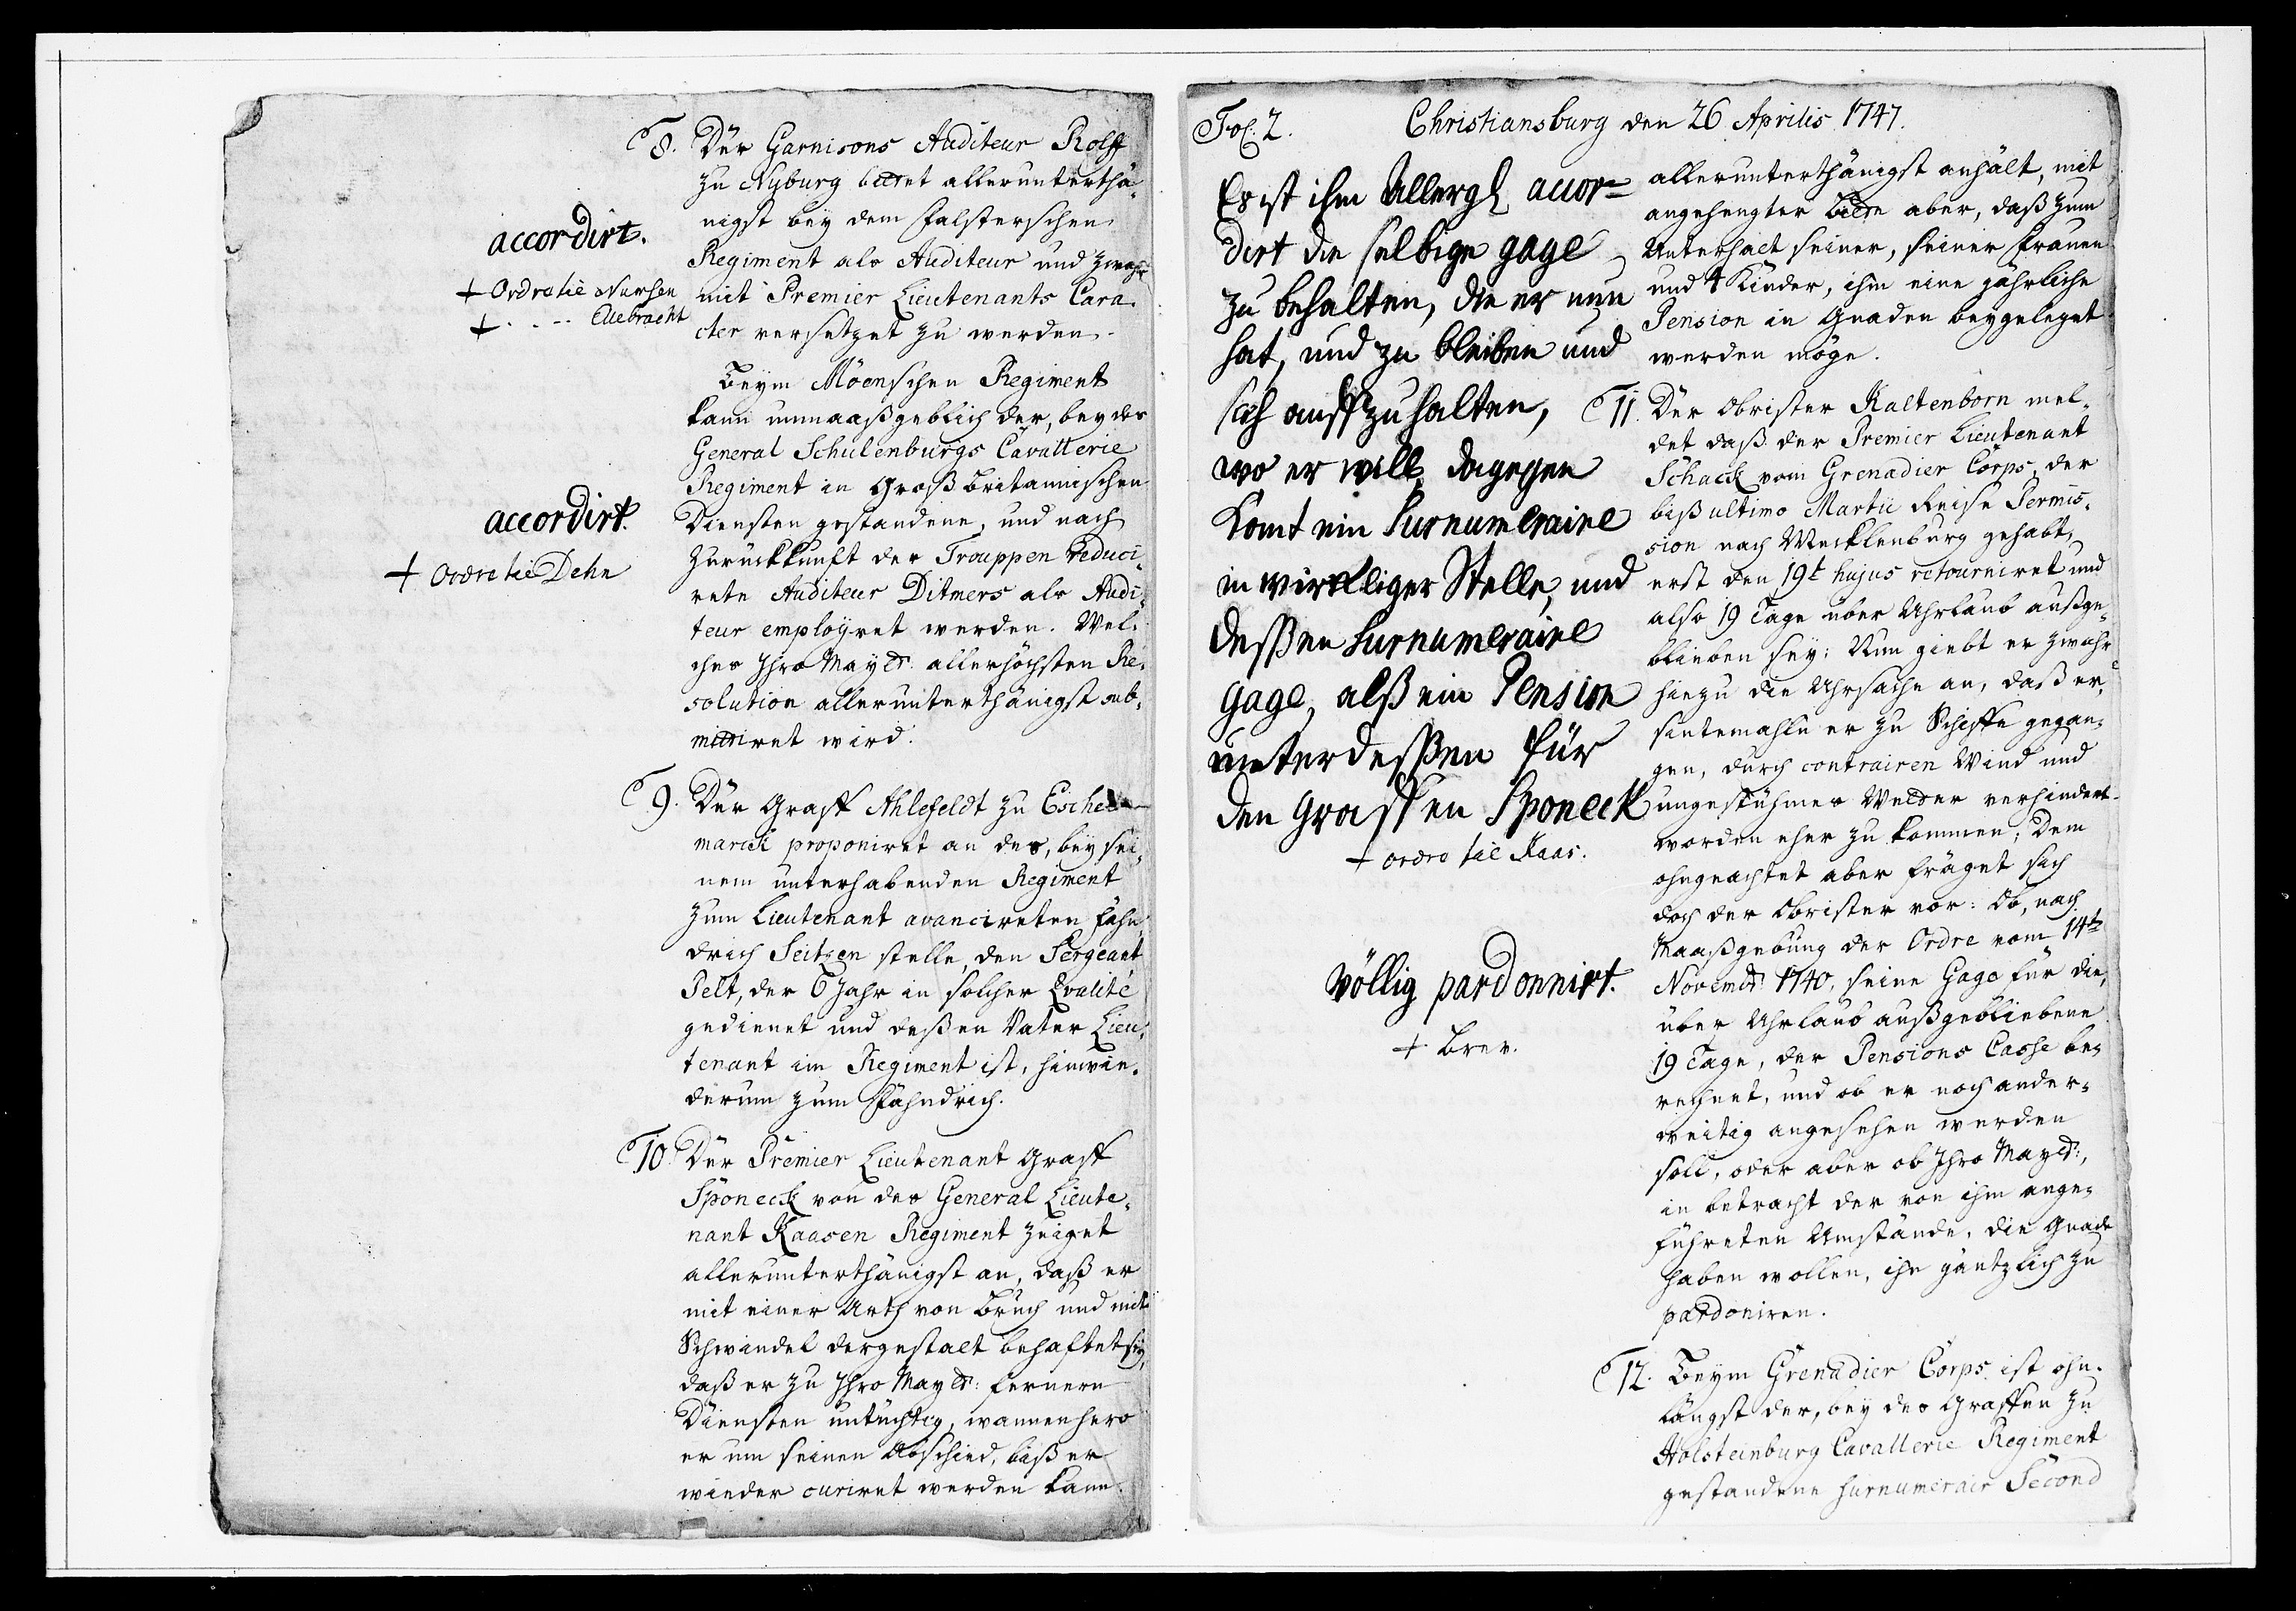 8. Der Garnisons Auditeur Rolff
zu Nyburg bittet allerunterthä-
nigst bey dem Falsterschen
Regiment als Auditeur und zwahr
mit Premier Lieutenants Cara-
cter versetzet zu werden.
accordirt.
+ Ordre til Nursen
+ . - - - Ellebracht
Beym Möenschen Regiment
kann unmaaßgeblich der, bey des
General Schulenburgs Cavallerie
Regiment in Groß Britannischen
Diensten gestandene, und nach
Zurückkunft der Trouppen reduci-
rete Auditeur Ditmers als Audi-
teur employret werden. Wel-
ches Ihro Maytt: allerhöchsten Re-
solution allerunterthänigst sub-
mittiret wird.
accordirt.
+ Ordre til Dehn
9. Der Graff Ahlefeldt zu Esche
marck proponiret an des, bey sei-
nem unterhabenden Regiment
zum Lieutenant avancireten Fähn-
drich Seitzen stelle, den Sergeant
Pelt, der 6 Jahr in solcher Qvalité
gedienet und deßen Vater Lieu-
tenant im Regiment ist, hinwie-
derum zum Fähndrich.
10. Der Premier Lieutenant Graff
Sponeck von des General Lieute-
nant Kaasen Regiment zeiget
allerunterthänigst an, daß er
mit einer Arth von Bruch und mit
Schwindel dergestalt behaftet sey,
daß er zu Ihro Maytt: fernern
Diensten untüchtig, wannenhero
er um seinen Abschied, biß er
wieder curiret werden kann.
Fol. 2. Christiansburg den 26 Aprilis 1747.
allerunterthänigst anhält, mit
angehengter Bitte aber, daß zum
Unterhalt seiner, seiner Frauen
und 4 Kinder, ihm eine jährliche
Pension in Gnaden beygeleget
werden möge.
Es ist ihm Allergl accor-
dirt die selbige gage
zu behalten, die er nun
hat, und zu bleiben und
sich auffzuhalten,
wo er will, dagegen
Komt ein Surnumeraire
in wirckliger Stelle, und
deßen Surnumeraire
gage, alß ein Pension
unterdeßen für
den Graffen Sponeck
+ ordre til Kaas.
11. Der Obrister Kaltenborn mel-
det daß der Premier Lieutenant
Schack vom Grenadier Corps, der
biß ultimo Martii Reise Permis-
sion nach Mecklenburg gehabt,
erst den 19t hujus retourniret und
also 19 Tage über Uhrlaub außge-
blieben sey; Nun giebt er zwahr
hiezu die Uhrsache an, daß er,
sintemahle er zu Schiffe gegan-
gen, durch contrairen Wind und
ungestühmes Wetter verhindert
worden eher zu kommen; Dem
ohngeachtet aber fräget sich
doch der Obrister vor: Ob, nach
Maaßgebung der Ordre vom 14ten
Novembr 1740, seine Gage für die,
über Uhrlaub außgebliebene
19 Tage, der Pensions Casse be-
rechnet, und ob er noch ander-
weitig angesehen werden
soll, oder aber ob Ihro Maytt:,
in betracht der von ihm ange-
führeten Umstände, die Gnade
haben wollen, ihn gäntzlich zu
pardoniren.
völlig pardonnirt.
+ Brev.
12. Beym Grenadier Corps ist ohn-
längst der, bey des Graffen zu
Holsteinburg Cavallerie Regiment
gestandene surnumerair Second